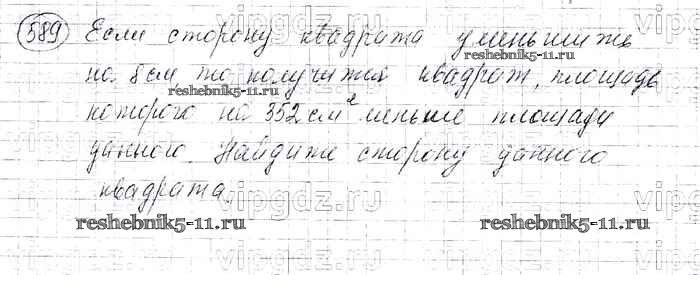 589 Если сторону квадрата уменьшить
на 8см то получится квадрат, площадь
reshebnik5-11.ru
которого на 352см² меньше площади
данного. Найдите сторону данного
квадрата.
vipgdz.ru
reshebnik5-11.ru reshebnik5-11.ru